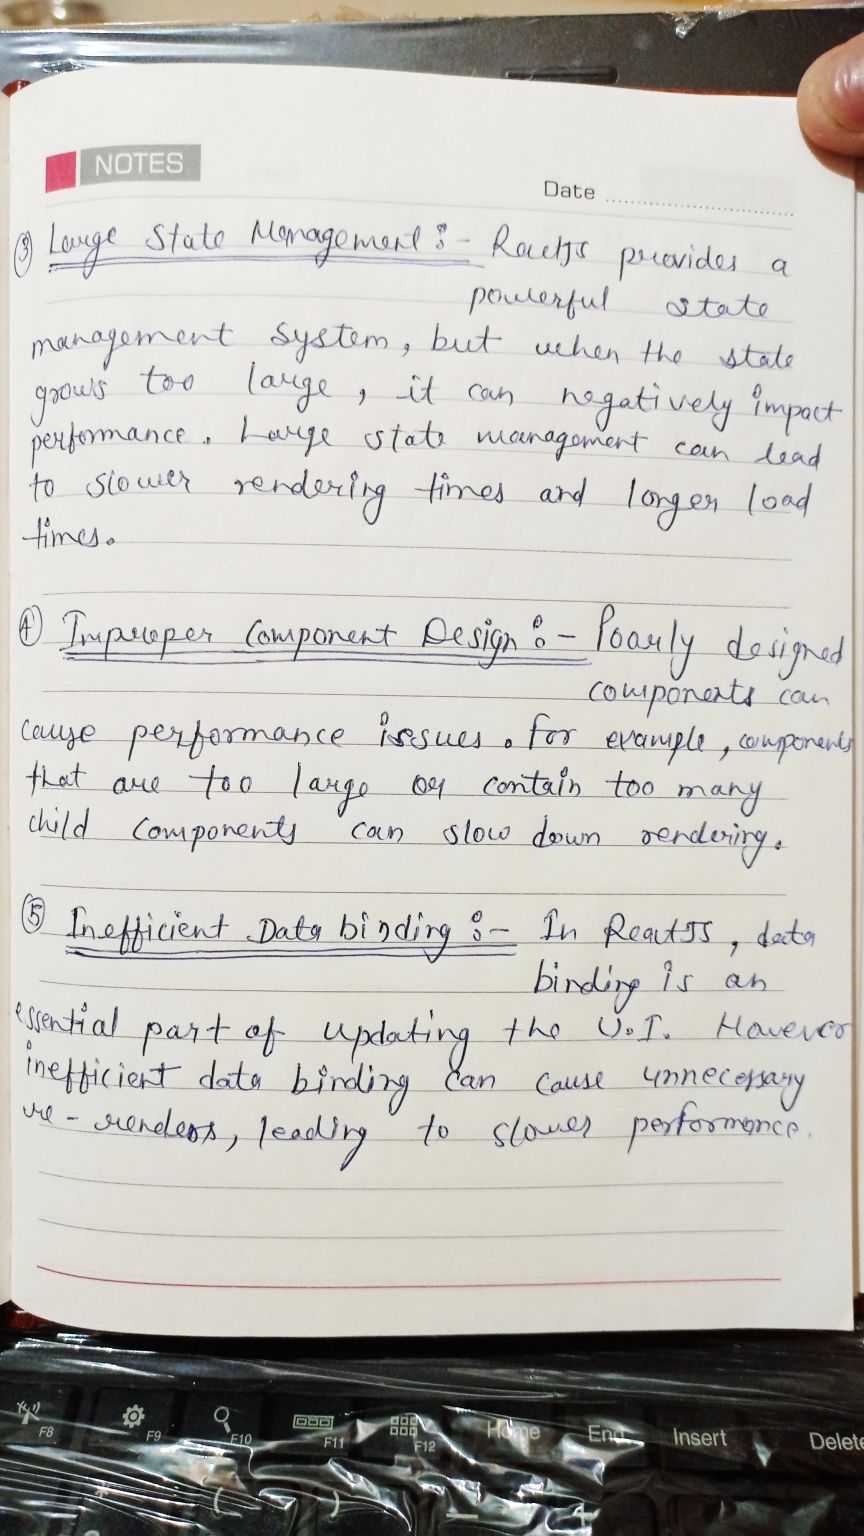 NOTES
Date
③ Large State Management :- ReactJS provides a
powerful state
management system, but when the state
grows too large, it can negatively impact
performance. Large state management can lead
to slower rendering times and longer load
times.
④ Improper Component Design :- Poorly designed
components can
cause performance issues. For example, components
that are too large or contain too many
child components can slow down rendering.
⑤ Inefficient Data binding :- In ReactJS, data
binding is an
essential part of updating the U.I. However
inefficient data binding can cause unnecessary
re-renders, leading to slower performance.
F8
F9
F10
F11
F12
Home
End
Insert
Delete